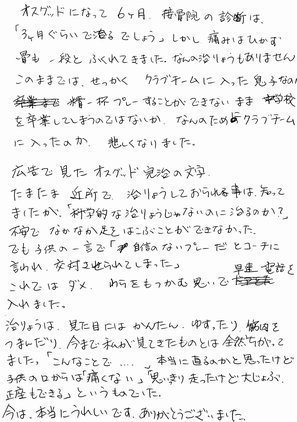 オスグッドになって 6ヶ月. 接骨院の診断は、
「3ヶ月ぐらいで治るでしょう」しかし痛みはひかず
骨も一段とふくれてきました。なんの治りょうもありません
このままでは、せっかく クラブチームに入った息子なのに
精一杯プレーすることができないまま 中学校
を卒業してしまうのではないか、なんのため クラブチーム
に入ったのか、 悲しくなりました。
広告で見た オスグッド完治の文字.
たまたま 近所で、治りょうしておられる事は、知って
ましたが、「科学的な治りょうじゃないのに治るのか?」
不安で なかなか足をはこぶことができなかった。
でも子供の一言で「自信のないプレーだとコーチに
言われ、交対させられてしまった」
これでは ダメ、 わらをもつかむ思いで 早速 電話を
入れました。
治りょうは、見た目には かんたん、ゆすったり、筋肉を
つまんだり、今まで私が見てきたものとは 全然ちがって
ました。「こんなことで.... 本当に直るのかと思ったけど
子供の口からは「痛くない」「思いきり走ったけど大じょぶ、
正座もできる」というものでした。
今は、本当にうれしいです。ありがとうございました。